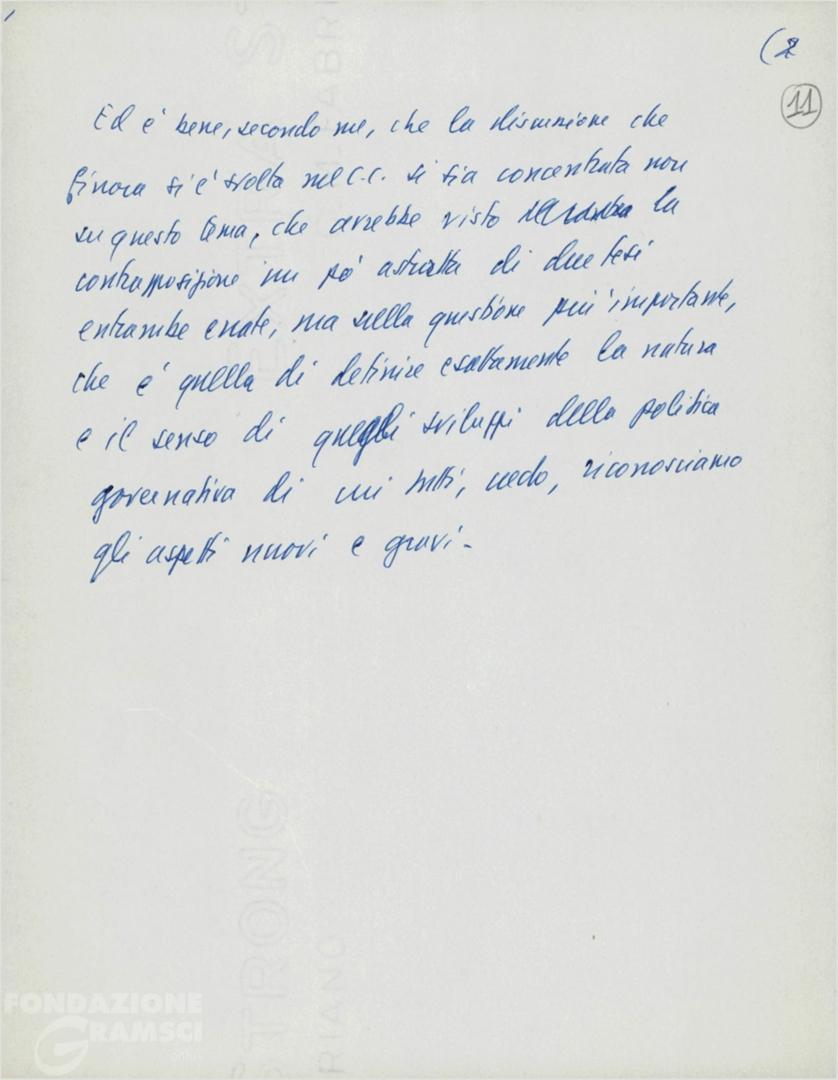 (2
11
Ed è bene, secondo me, che la discussione che
finora si è svolta nel C.C. si sia concentrata non
su questo tema, che avrebbe visto la
contrapposizione un po' astratta di due tesi
entrambe errate, ma sulla questione più importante,
che è quella di definire esattamente la natura
e il senso di quegli sviluppi della politica
governativa di cui tutti, credo, riconosciamo
gli aspetti nuovi e gravi -
EXTRA S
FABRI
STRONG
RIANO
FONDAZIONE
GRAMSCI
onlus